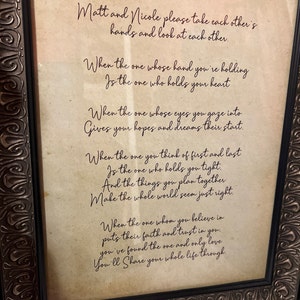 Matt and Nicole please take each other's
hands and look at each other
When the one whose hand you're holding
Is the one who holds your heart
When the one whose eyes you gaze into
Gives your hopes and dreams their start
When the one you think of first and last
Is the one who holds you tight,
And the things you plan together
Make the whole world seem just right,
When the one whom you believe in
puts their faith and trust in you
you've found the one and only love
You'll Share your whole life through.